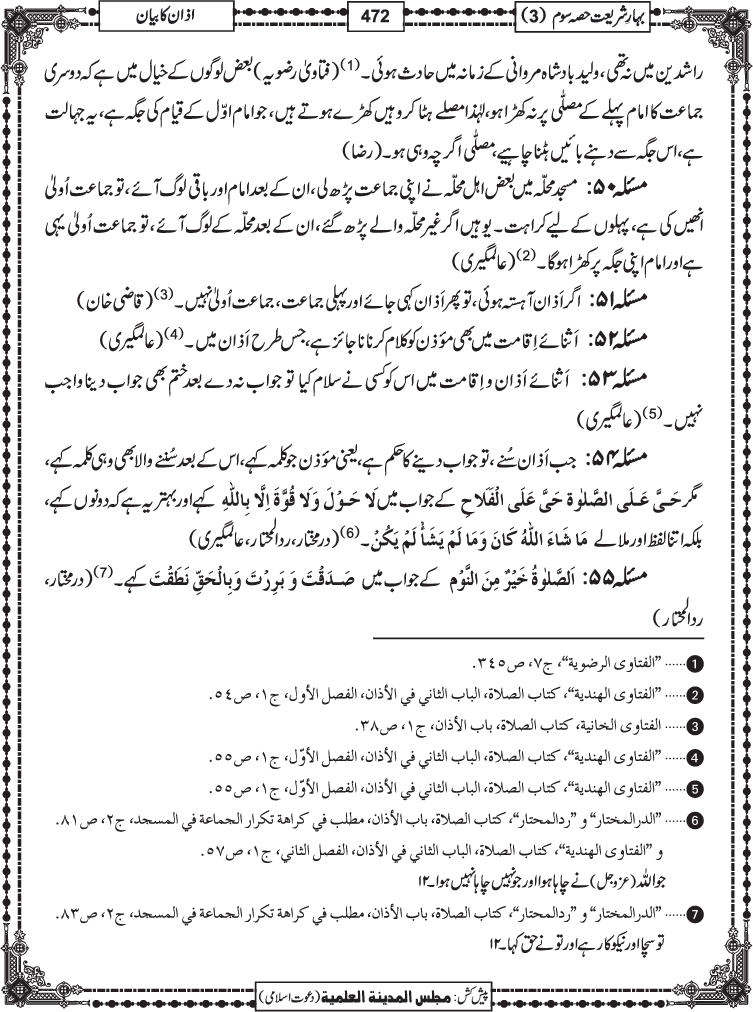 بہارِ شریعت حصہ سوم (3)
472
اذان کا بیان
راشدین میں نہ تھی، ولید بادشاہ مروانی کے زمانہ میں حادث ہوئی۔(1) (فتاویٰ رضویہ) بعض لوگوں کے خیال میں ہے کہ دوسری
جماعت کا امام پہلے کے مصلّی پر نہ کھڑا ہو، لہٰذا مصلے ہٹا کر وہیں کھڑے ہوتے ہیں، جو امام اوّل کے قیام کی جگہ ہے، یہ جہالت
ہے، اس جگہ سے دہنے بائیں ہٹنا چاہیے، مصلّی اگرچہ وہی ہو۔ (رضا)
مسئلہ ۵۰: مسجد محلّہ میں بعض اہل محلّہ نے اپنی جماعت پڑھ لی، ان کے بعد امام اور باقی لوگ آئے، تو جماعت اُولیٰ
انھیں کی ہے، پہلوں کے لیے کراہت۔ یوہیں اگر غیر محلّہ والے پڑھ گئے، ان کے بعد محلّہ کے لوگ آئے، تو جماعت اُولیٰ یہی
ہے اور امام اپنی جگہ پر کھڑا ہوگا۔(2) (عالمگیری)
مسئلہ ۵۱: اگر اَذان آہستہ ہوئی، تو پھر اَذان کہی جائے اور پہلی جماعت، جماعت اُولیٰ نہیں۔(3) (قاضی خان)
مسئلہ ۵۲: اَثنائے اِقامت میں بھی مؤذن کو کلام کرنا ناجائز ہے، جس طرح اَذان میں۔(4) (عالمگیری)
مسئلہ ۵۳: اَثنائے اَذان و اِقامت میں اس کو کسی نے سلام کیا تو جواب نہ دے بعد ختم بھی جواب دینا واجب
نہیں۔(5) (عالمگیری)
مسئلہ ۵۴: جب اَذان سُنے، تو جواب دینے کا حکم ہے، یعنی مؤذن جو کلمہ کہے، اس کے بعد سُننے والا بھی وہی کلمہ کہے،
مگر حَیَّ عَلَی الصَّلٰوۃ حَیَّ عَلَی الْفَلَاحِ کے جواب میں لَا حَوْلَ وَلَا قُوَّۃَ اِلَّا بِاللّٰہِ کہے اور بہتر یہ ہے کہ دونوں کہے،
بلکہ اتنا لفظ اور ملا لے مَا شَاءَ اللّٰہُ کَانَ وَمَا لَمْ یَشَأْ لَمْ یَکُنْ۔(6) (درمختار، ردالمحتار، عالمگیری)
مسئلہ ۵۵: اَلصَّلٰوۃُ خَیْرٌ مِنَ النَّوْمِ کے جواب میں صَدَقْتَ وَ بَرِرْتَ وَبِالْحَقِّ نَطَقْتَ کہے۔(7) (درمختار،
ردالمحتار)
1 ...... ”الفتاوی الرضویة“، ج۷، ص۳٤٥.
2 ...... ”الفتاوی الهندية“، کتاب الصلاة، الباب الثاني في الأذان، الفصل الأول، ج۱، ص٥٤.
3 ...... الفتاوی الخانية، کتاب الصلاة، باب الأذان، ج۱، ص۳۸.
4 ...... ”الفتاوی الهندية“، کتاب الصلاة، الباب الثاني في الأذان، الفصل الأوّل، ج۱، ص٥٥.
5 ...... ”الفتاوی الهندية“، کتاب الصلاة، الباب الثاني في الأذان، الفصل الأوّل، ج۱، ص٥٥.
6 ...... ”الدرالمختار“ و ”ردالمحتار“، کتاب الصلاة، باب الأذان، مطلب في کراهة تکرار الجماعة في المسجد، ج۲، ص۸۱.
و ”الفتاوی الهندية“، کتاب الصلاة، الباب الثاني في الأذان، الفصل الثاني، ج۱، ص٥۷.
جو اللہ (عزوجل) نے چاہا ہوا اور جو نہیں چاہا نہیں ہوا۔ ۱۲
7 ...... ”الدرالمختار“ و ”ردالمحتار“، کتاب الصلاة، باب الأذان، مطلب في کراهة تکرار الجماعة في المسجد، ج۲، ص۸۳.
تو سچا اور نیکوکار ہے اور تو نے حق کہا۔ ۱۲
پیش کش: مجلس المدینة العلمیة (دعوت اسلامی)